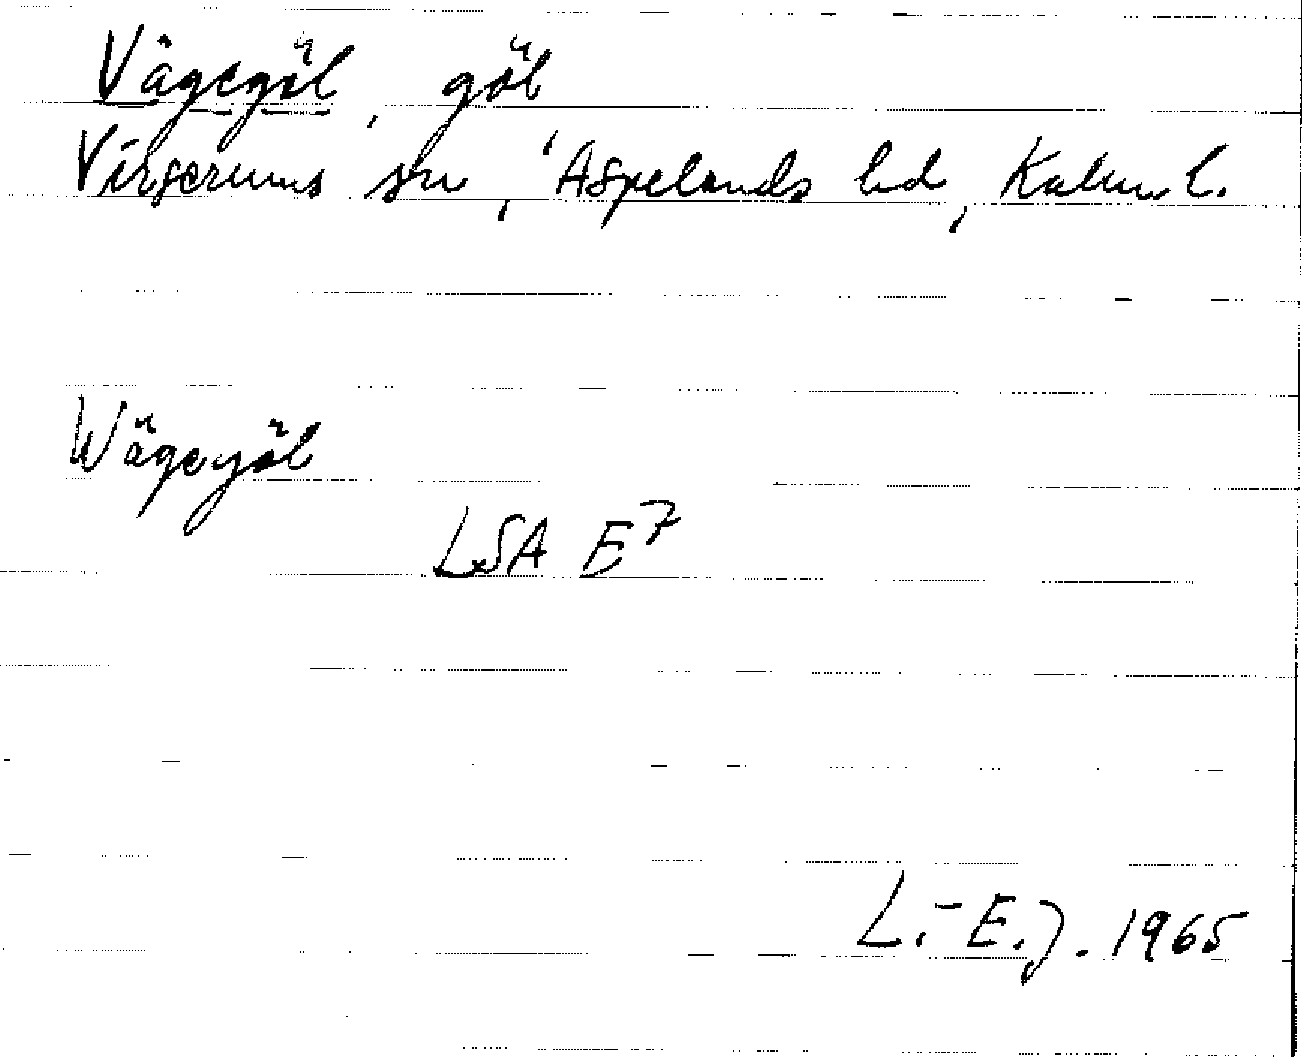 Vågegöl, göl
Virserums sn, Aspelands hd, Kalm l.
Wägegöl
LSA E7
L.-E.J. 1965